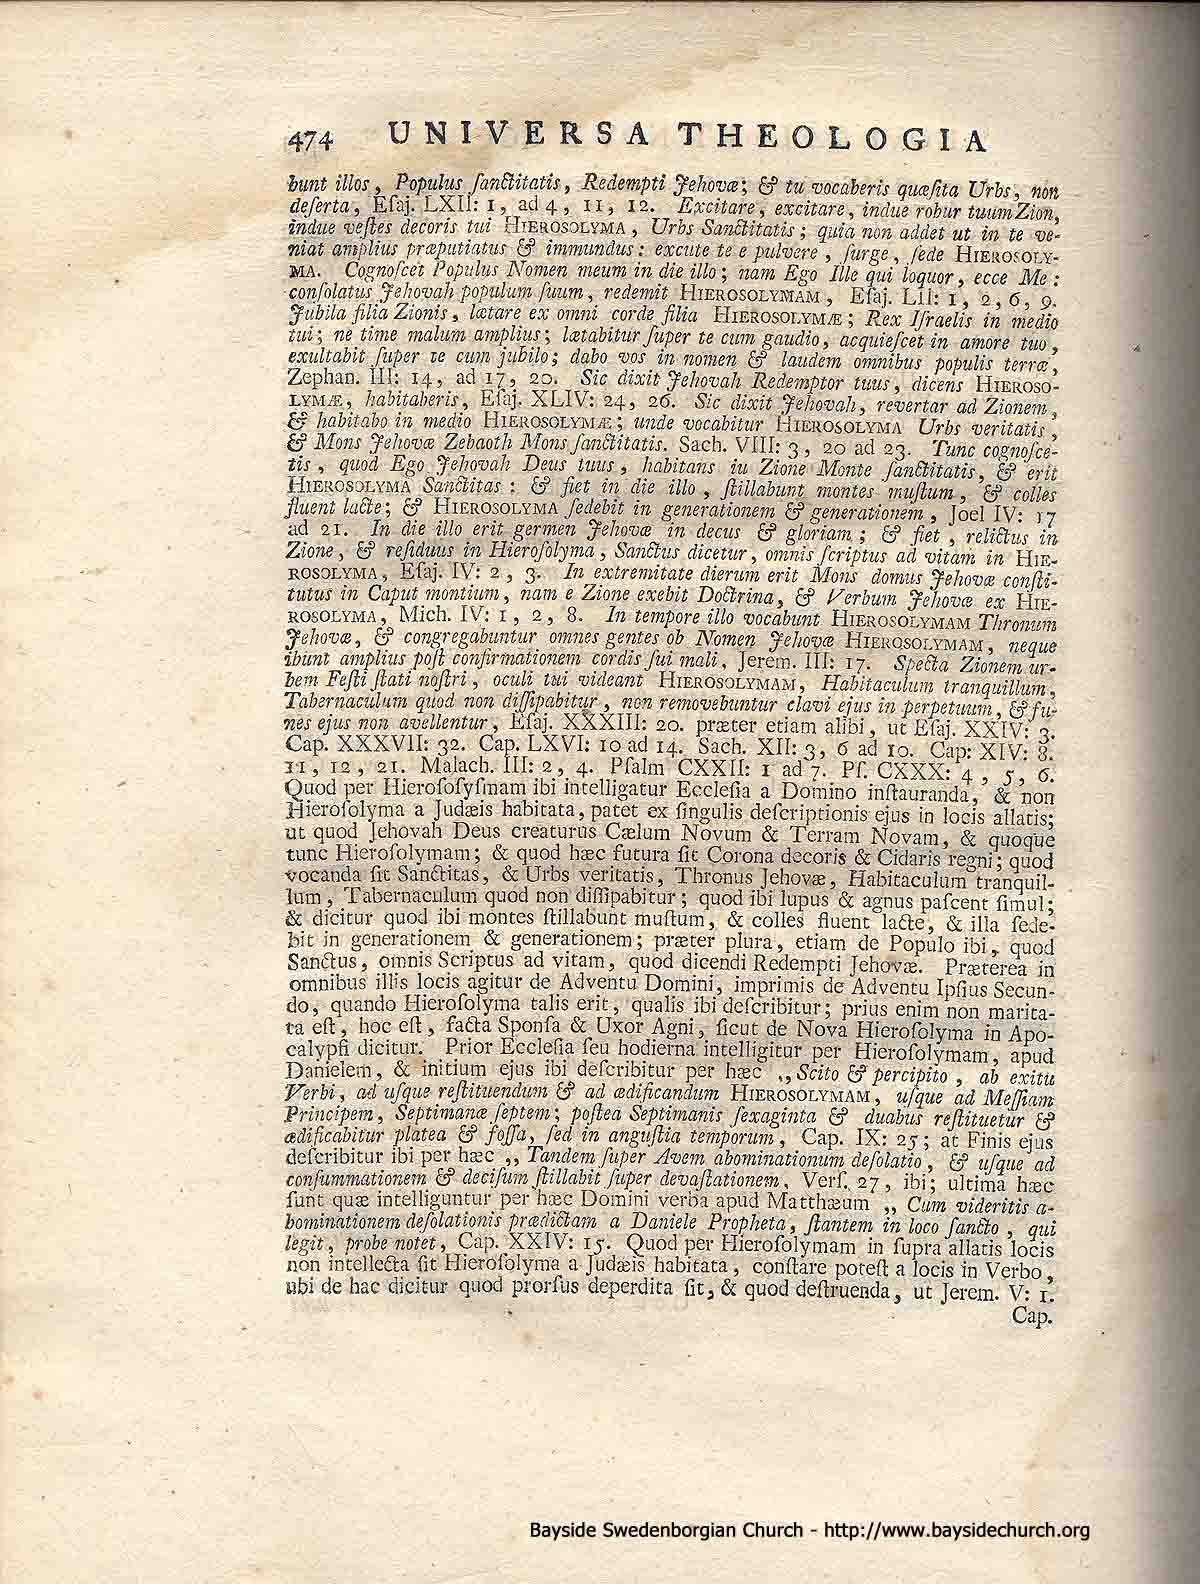 474 UNIVERSA THEOLOGIA
bunt illos, Populus ſanctitatis, Redempti Jehovæ; & tu vocaberis quæſita Urbs, non
deſerta, Eſaj. LXII: 1, ad 4, 11, 12. Excitare, excitare, indue robur tuum Zion,
indue veſtes decoris tui HIEROSOLYMA, Urbs Sanctitatis; quia non addet ut in te ve-
niat amplius præputiatus & immundus: excute te e pulvere, ſurge, ſede HIEROSOLY-
MA. Cognoſcet Populus Nomen meum in die illo; nam Ego Ille qui loquor, ecce Me:
conſolatus Jehovah populum ſuum, redemit HIEROSOLYMAM, Eſaj. LII: 1, 2, 6, 9.
Jubila filia Zionis, lætare ex omni corde filia HIEROSOLYMÆ; Rex Iſraelis in medio
tui; ne time malum amplius; lætabitur ſuper te cum gaudio, acquieſcet in amore tuo,
exultabit ſuper te cum jubilo; dabo vos in nomen & laudem omnibus populis terræ,
Zephan. III: 14, ad 17, 20. Sic dixit Jehovah Redemptor tuus, dicens HIEROSO-
LYMÆ, habitaberis, Eſaj. XLIV: 24, 26. Sic dixit Jehovah, revertar ad Zionem,
& habitabo in medio HIEROSOLYMÆ; unde vocabitur HIEROSOLYMA Urbs veritatis,
& Mons Jehovæ Zebaoth Mons ſanctitatis. Sach. VIII: 3, 20 ad 23. Tunc cognoſce-
tis, quod Ego Jehovah Deus tuus, habitans iu Zione Monte ſanctitatis, & erit
HIEROSOLYMA Sanctitas: & fiet in die illo, ſtillabunt montes muſtum, & colles
fluent lacte; & HIEROSOLYMA ſedebit in generationem & generationem, Joel IV: 17
ad 21. In die illo erit germen Jehovæ in decus & gloriam; & fiet, relictus in
Zione, & reſiduus in Hieroſolyma, Sanctus dicetur, omnis ſcriptus ad vitam in HIE-
ROSOLYMA, Eſaj. IV: 2, 3. In extremitate dierum erit Mons domus Jehovæ conſti-
tutus in Caput montium, nam e Zione exebit Doctrina, & Verbum Jehovæ ex HIE-
ROSOLYMA, Mich. IV: 1, 2, 8. In tempore illo vocabunt HIEROSOLYMAM Thronum
Jehovæ, & congregabuntur omnes gentes ob Nomen Jehovæ HIEROSOLYMAM, neque
ibunt amplius poſt confirmationem cordis ſui mali, Jerem. III: 17. Specta Zionem ur-
bem Feſti ſtati noſtri, oculi tui videant HIEROSOLYMAM, Habitaculum tranquillum,
Tabernaculum quod non diſſipabitur, non removebuntur clavi ejus in perpetuum, & fu-
nes ejus non avellentur, Eſaj. XXXIII: 20. præter etiam alibi, ut Eſaj. XXIV: 3.
Cap. XXXVII: 32. Cap. LXVI: 10 ad 14. Sach. XII: 3, 6 ad 10. Cap: XIV: 8.
11, 12, 21. Malach. III: 2, 4. Pſalm CXXII: 1 ad 7. Pſ. CXXX: 4, 5, 6.
Quod per Hieroſoſyſmam ibi intelligatur Eccleſia a Domino inſtauranda, & non
Hieroſolyma a Judæis habitata, patet ex ſingulis deſcriptionis ejus in locis allatis;
ut quod Jehovah Deus creaturus Cælum Novum & Terram Novam, & quoque
tunc Hieroſolymam; & quod hæc futura ſit Corona decoris & Cidaris regni; quod
vocanda ſit Sanctitas, & Urbs veritatis, Thronus Jehovæ, Habitaculum tranquil-
lum, Tabernaculum quod non diſſipabitur; quod ibi lupus & agnus paſcent ſimul;
& dicitur quod ibi montes ſtillabunt muſtum, & colles fluent lacte, & illa ſede-
bit in generationem & generationem; præter plura, etiam de Populo ibi, quod
Sanctus, omnis Scriptus ad vitam, quod dicendi Redempti Jehovæ. Præterea in
omnibus illis locis agitur de Adventu Domini, imprimis de Adventu Ipſius Secun-
do, quando Hieroſolyma talis erit, qualis ibi deſcribitur; prius enim non marita-
ta eſt, hoc eſt, facta Sponſa & Uxor Agni, ſicut de Nova Hieroſolyma in Apo-
calypſi dicitur. Prior Eccleſia ſeu hodierna intelligitur per Hieroſolymam, apud
Danielem, & initium ejus ibi deſcribitur per hæc „Scito & percipito, ab exitu
Verbi, ad uſque reſtituendum & ad ædificandum HIEROSOLYMAM, uſque ad Meſſiam
Principem, Septimanæ ſeptem; poſtea Septimanis ſexaginta & duabus reſtituetur &
ædificabitur platea & foſſa, ſed in anguſtia temporum, Cap. IX: 25; at Finis ejus
deſcribitur ibi per hæc „ Tandem ſuper Avem abominationum deſolatio, & uſque ad
conſummationem & deciſum ſtillabit ſuper devaſtationem, Verſ. 27, ibi; ultima hæc
ſunt quæ intelliguntur per hæc Domini verba apud Matthæum „ Cum videritis a-
bominationem deſolationis prædictam a Daniele Propheta, ſtantem in loco ſancto, qui
legit, probe notet, Cap. XXIV: 15. Quod per Hieroſolymam in ſupra allatis locis
non intellecta ſit Hieroſolyma a Judæis habitata, conſtare poteſt a locis in Verbo,
ubi de hac dicitur quod prorſus deperdita ſit, & quod deſtruenda, ut Jerem. V: 1.
Cap.
Bayside Swedenborgian Church - http://www.baysidechurch.org